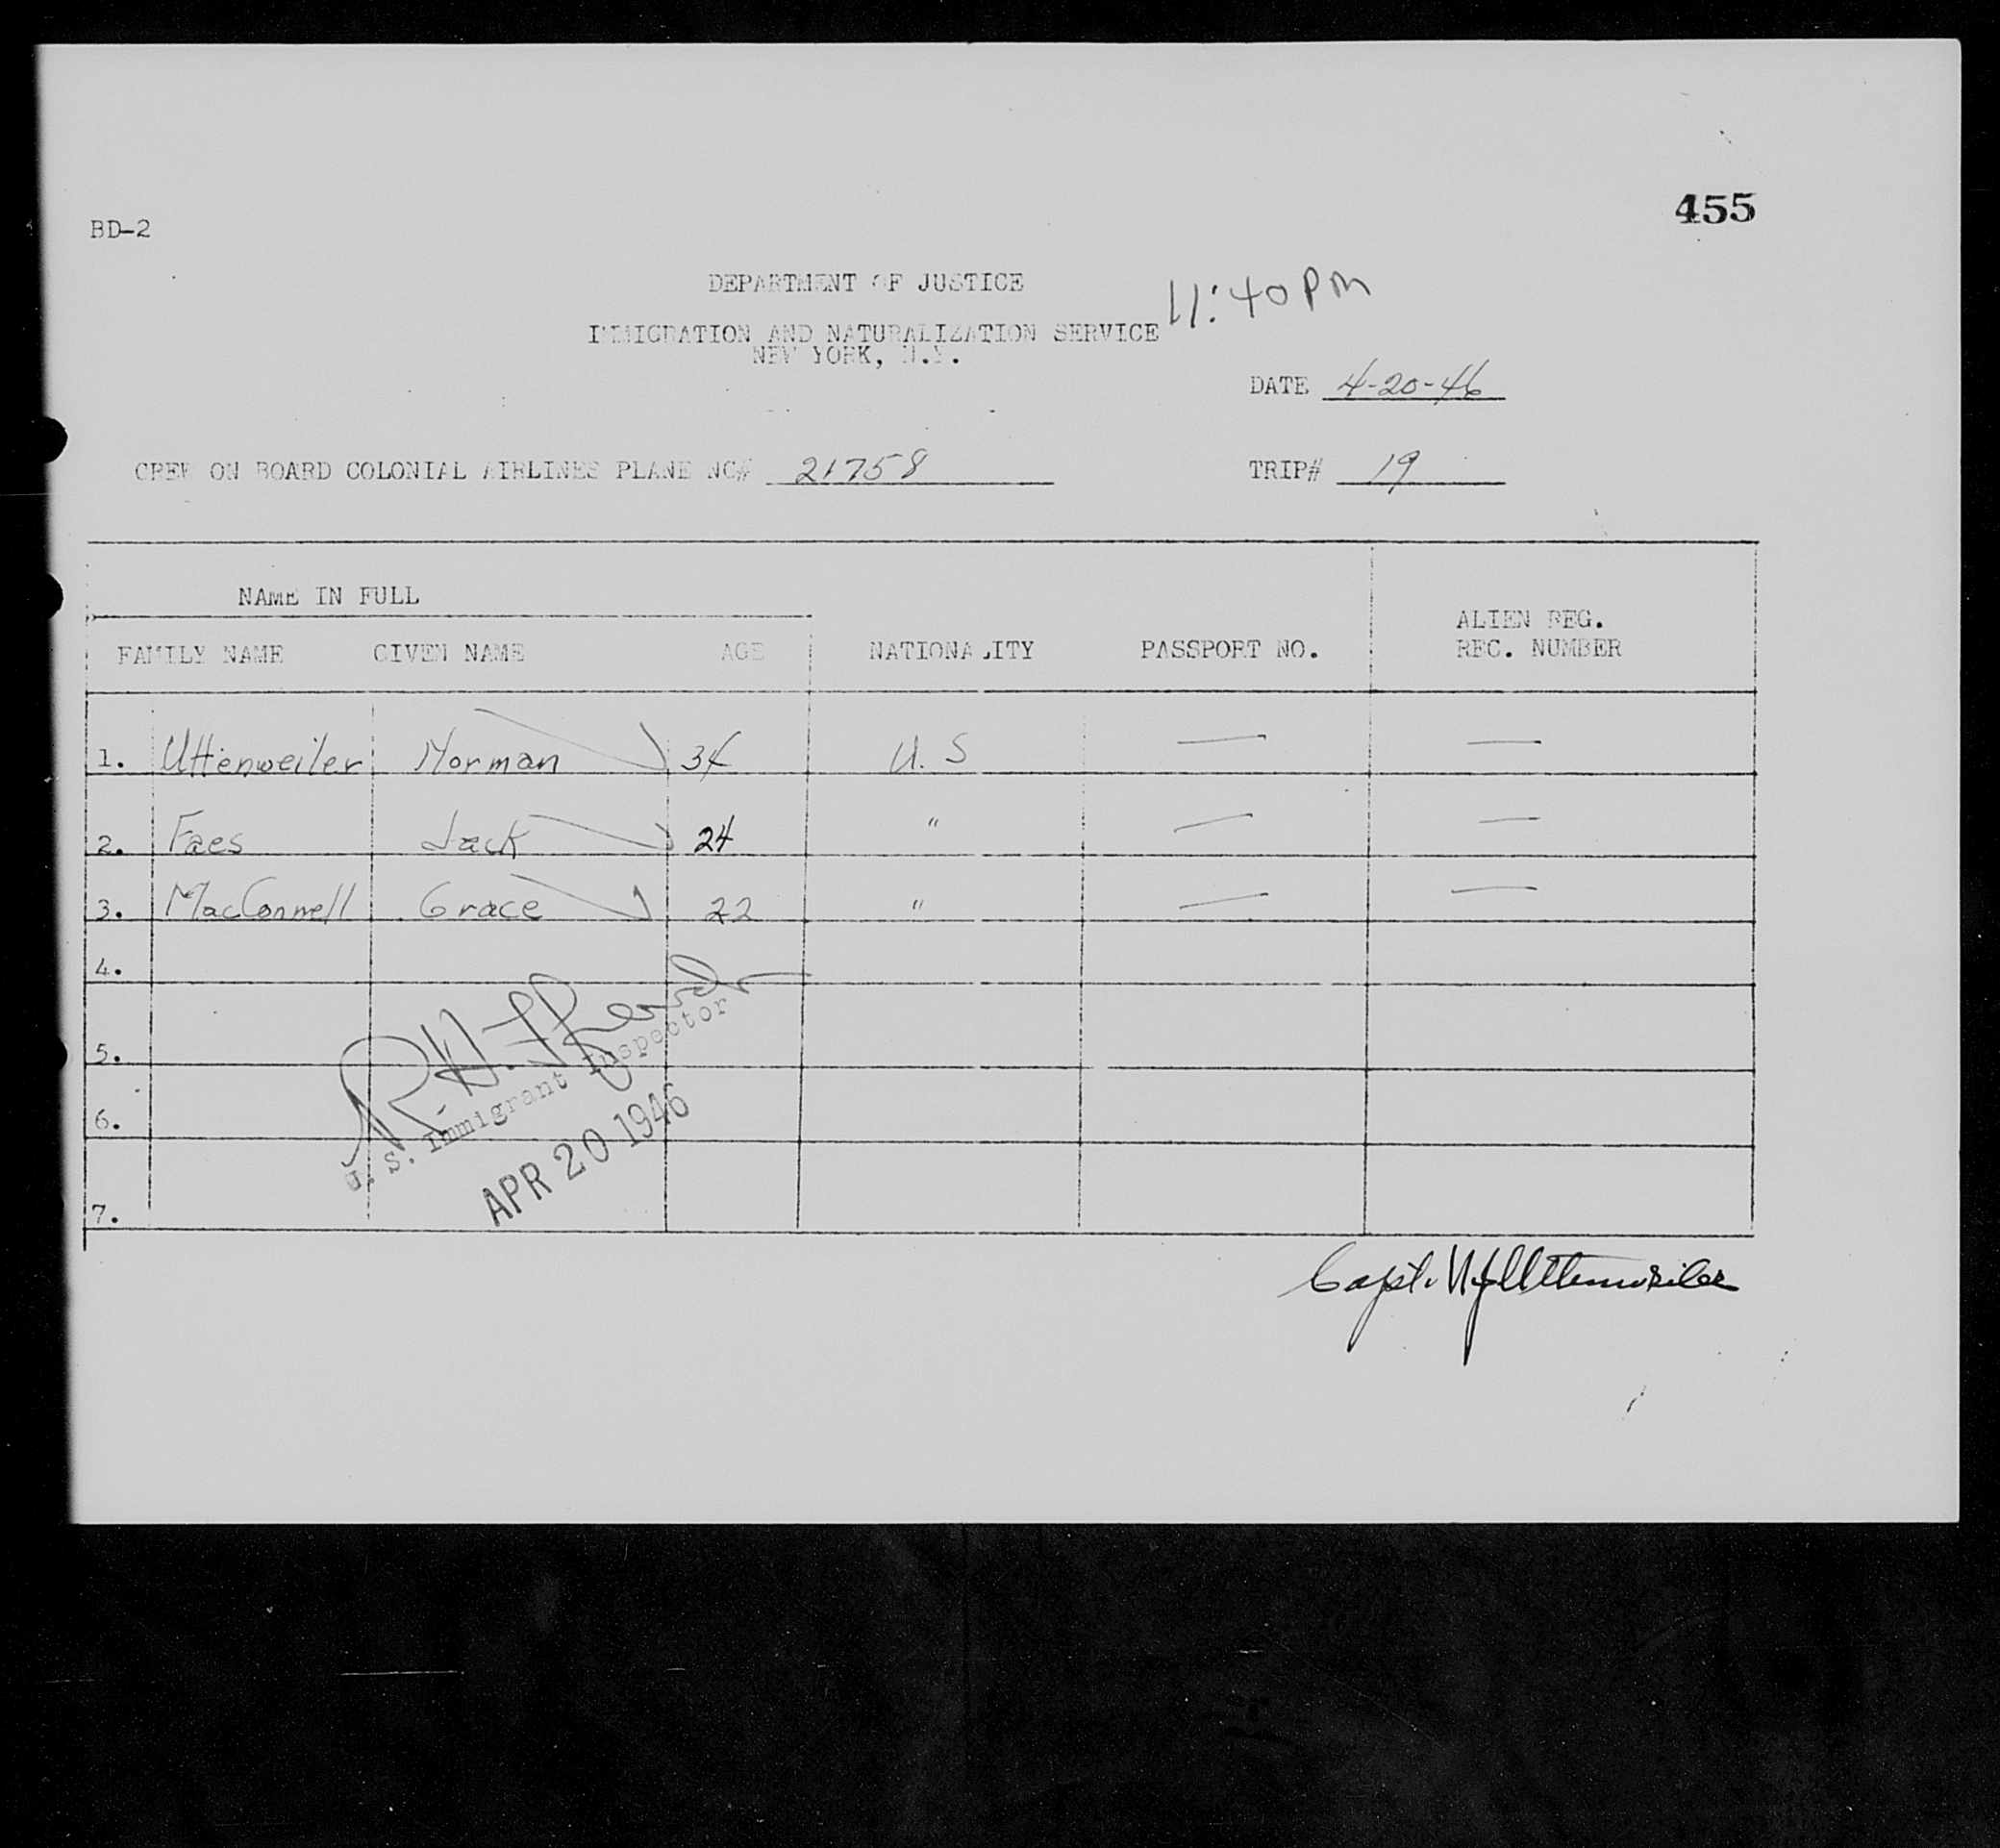 455
BD-2
DEPARTMENT OF JUSTICE
11:40 PM
IMMIGRATION AND NATURALIZATION SERVICE
NEW YORK, N.Y.
DATE 4-20-46
CREW ON BOARD COLONIAL AIRLINES PLANE NC# 21758 TRIP# 19
NAME IN FULL
FAMILY NAME GIVEN NAME AGE NATIONALITY PASSPORT NO. ALIEN REG. REC. NUMBER
1. Uttenweiler Norman 34 U.S — —
2. Faes Jack 24 " — —
3. MacConnell Grace 22 " — —
4.
5.
6.
7.
R. H.
U. S. Immigrant Inspector
APR 20 1946
Capt. N J Uttenweiler